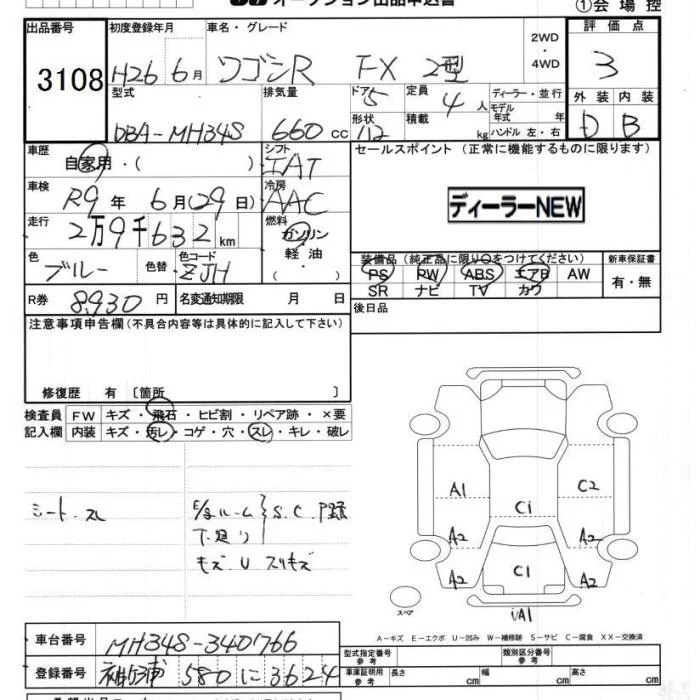 オークション出品申込書
①会場控
出品番号 3108
初度登録年月 H26 6月
車名・グレード ワゴンR FX 2型
2WD・4WD
評価点 3
外装 D 内装 B
型式 DBA-MH34S
排気量 660cc
ドア 5
形状
定員 4人
積載 kg
ディーラー・並行
モデル年式 年
ハンドル 左・右
車歴 自家用・( )
シフト IAT
セールスポイント (正常に機能するものに限ります)
車検 R9年 6月(29日)
冷房 AAC
ディーラーNEW
走行 2万9千632km
燃料 ガソリン 軽油 ・( )
装備品 (純正品に限り○をつけてください) 新車保証書
色 ブルー 色替 色コード ZJH
PS PW ABS エアB AW 有・無
SR ナビ TV カワ
R券 8,930円 名変通知期限 月 日
後日品
注意事項申告欄(不具合内容等は具体的に記入して下さい)
修復歴 有 〔箇所 〕
検査員 FW キズ・飛石・ヒビ割・リペア跡・×要
記入欄 内装 キズ・汚レ・コゲ・穴・スレ・キレ・破レ
シート・スレ
E/gルーム
下廻り
S.C.
キズ U スリキズ
A1
C2
C1
A2
A2
A2
C1
A2
UA1
スペア
A-キズ E-エクボ U-凹み W-補修跡 S-サビ C-腐食 XX-交換済
車台番号 MH34S-340766
型式指定番号 参考
類別区分番号 参考
登録番号 袖ヶ浦 580 に 3624
車庫証明用 参考 長さ cm 幅 cm 高さ cm